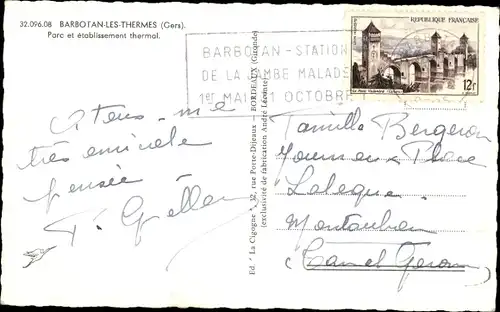 32.096.08 BARBOTAN-LES-THERMES (Gers).
Parc et établissement thermal.
RÉPUBLIQUE FRANÇAISE
12F
BARBOTAN - STATION
DE LA JAMBE MALADE
1er MAI OCTOBRE
A tous - me
très amicale
pensée
Ed. "La Cigogne" 32, rue Porte-Dijeaux - BORDEAUX (Gironde)
(exclusivité de fabrication André Leconte)
Famille Bergeron
Place
Lalaque
Montauban
(Tarn et Garonne)